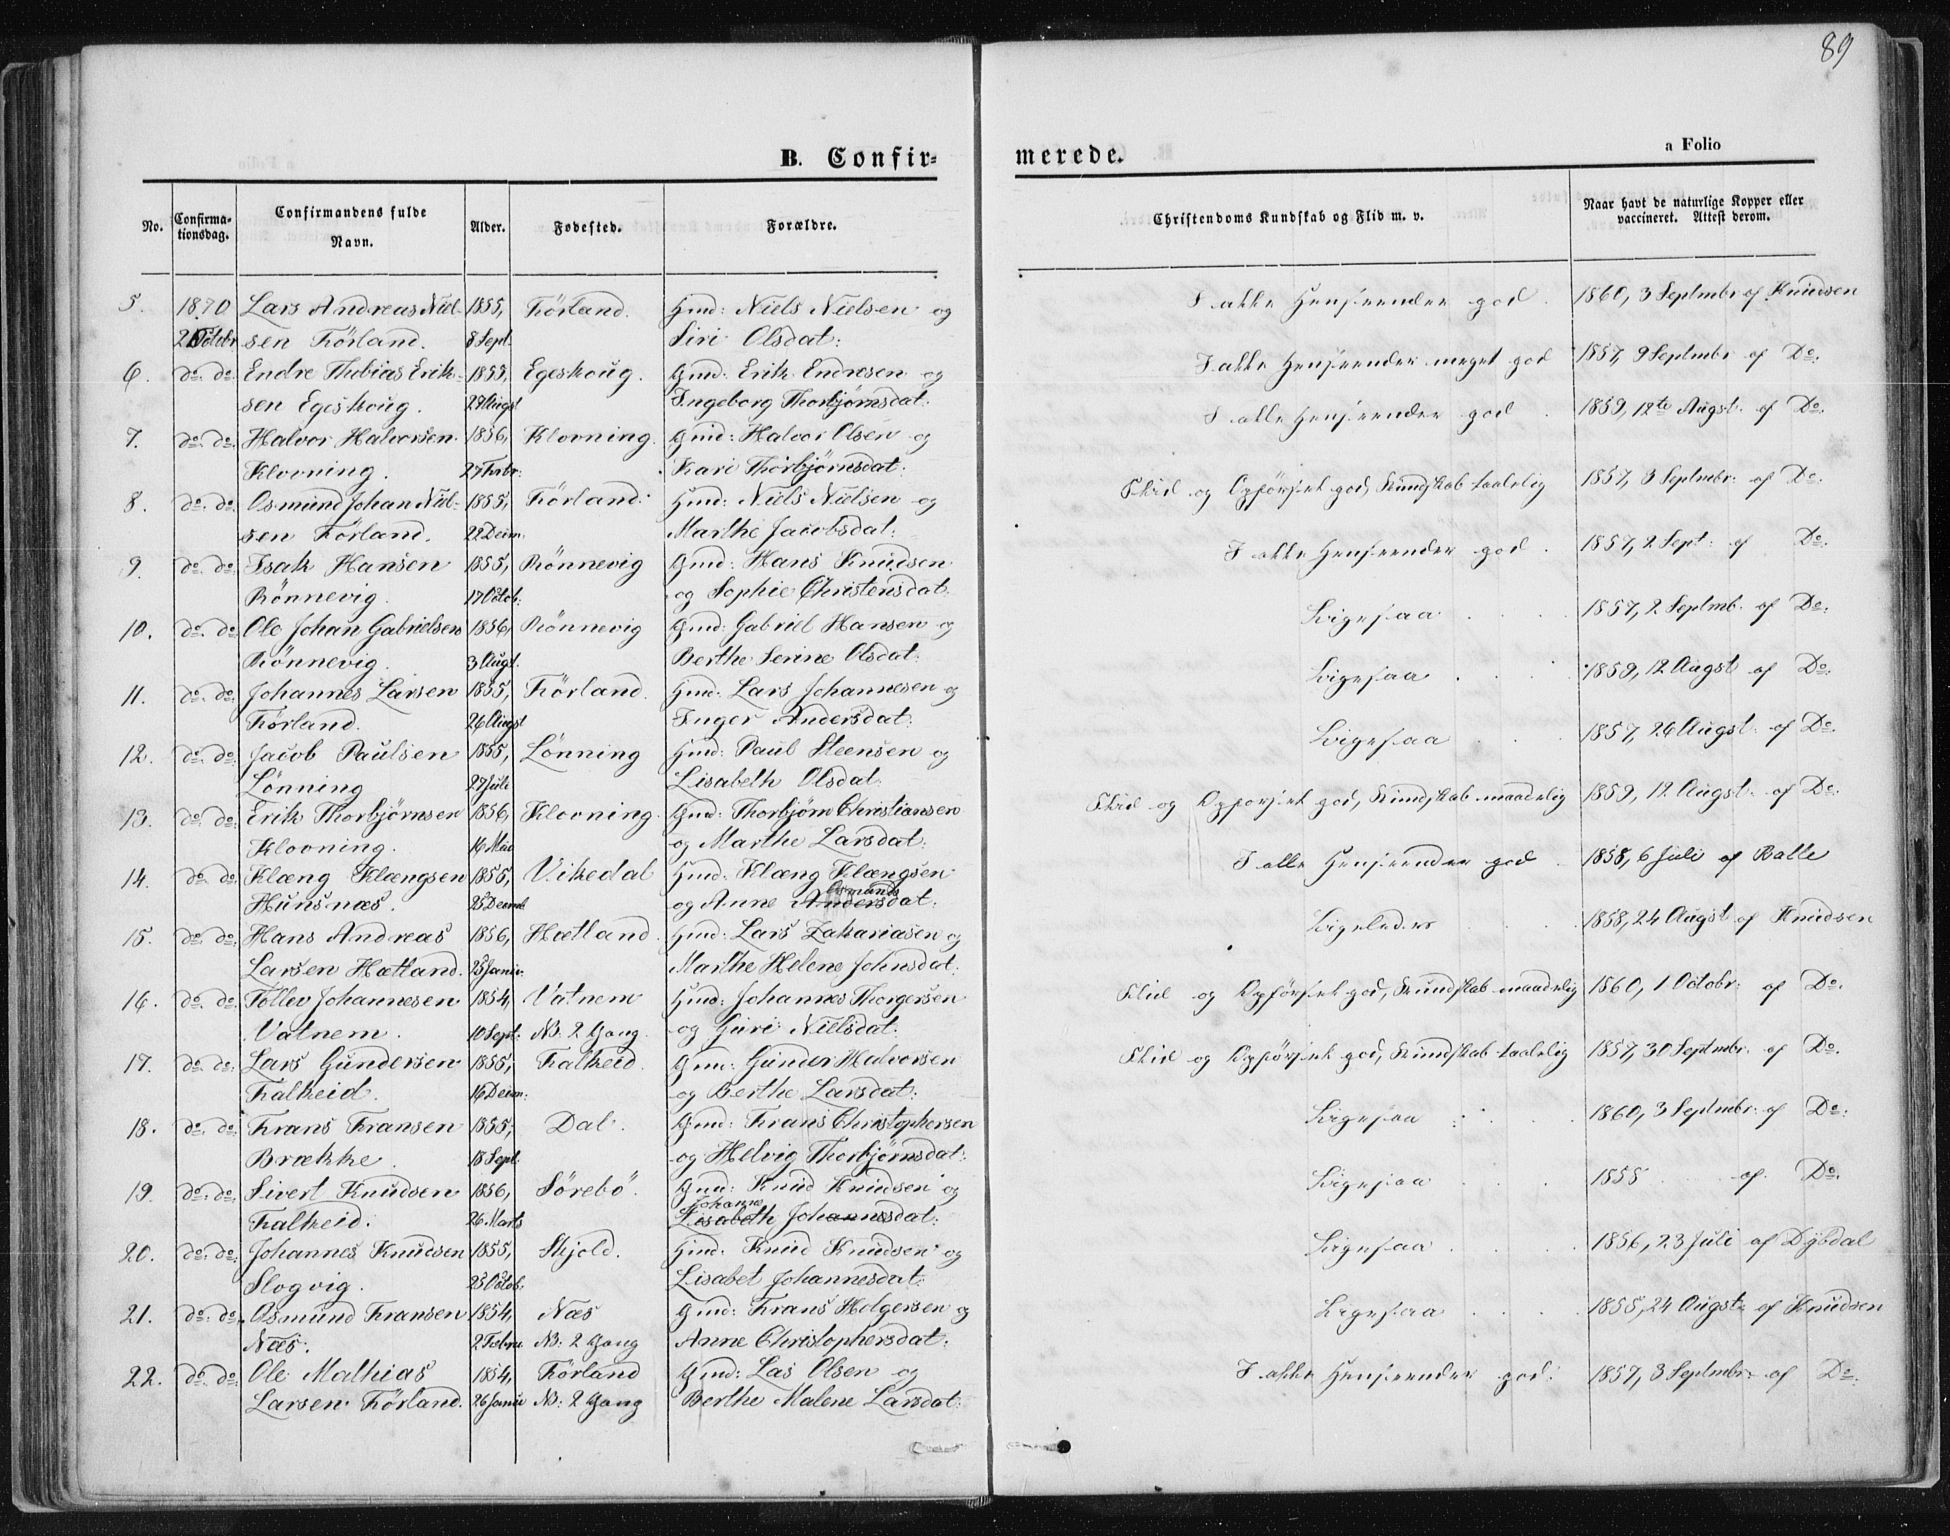 89
B. Confir-
merede.
a Folio
No.
Confirma-
tionsdag.
Confirmandens fulde
Navn.
Alder.
Fødested.
Forældre.
Christendoms Kundskab og Flid m. v.
Naar havt de naturlige Kopper eller
vaccineret. Attest derom.
5. 1870 Lars Andreas Niel- 1855, Förland. Gmd: Niels Nielsen og
2 Octobr sen Förland. 8 Sept. Siri Olsdat:
I alle Henseender god. 1860, 3 Septmbr af Knudsen
6. do. do: Endre Thobias Erik- 1855, Egeskoug. Gmd: Erik Endresen og
sen Egeskoug. 28 Augst Ingeborg Thorbjørnsdat:
I alle Henseender meget god 1857, 9 Septmbr af Do:
7. do. do: Halvor Halvorsen 1856, Klovning. Gmd: Halvor Olsen og
Klovning. 27 Febr: Kari Thorbjørnsdat:
I alle Henseender god. 1859, 12te Augst. af Do:
8. do. do: Osmund Johan Niel- 1855, Förland: Gmd: Niels Nielsen og
sen Förland. 22 Decm. Marthe Jacobsdat:
Flid og Opførsel god, Kundskab taalelig 1857, 3 Septmbr: af Do:
9. do. do: Isak Hansen 1855, Rönnevig Gmd: Hans Knudsen
Rönnevig. 17 Octob: og Sophie Christensdat.
I alle Henseender god. 1857, 2 Sept: af Do:
10. do. do: Ole Johan Gabrielsen 1856, Rönnevig Gmd: Gabriel Hansen og
Rönnevig. 3 Augst. Berthe Serine Olsdat:
Ligesaa 1857, 2 Septmb. af Do:
11. do. do: Johannes Larsen 1855, Förland. Gmd: Lars Johannesen og
Förland. 26 Augst Inger Andersdat:
Ligesaa 1859, 12 Augst af Do:
12. do. do: Jacob Paulsen 1855, Lönning Gmd: Paul Steensen og
Lönning 27 Juli Lisabeth Olsdat
Ligesaa 1857, 26 Augst. af Do:
13. do. do: Erik Thorbjørnsen 1856, Klovning. Gmd: Thorbjørn Christiansen
Klovning. 16 Mai og Marthe Larsdat:
Flid og Opførsel god, Kundskab maadelig 1859, 12 Augst. af Do:
14. do. do: Klæng Klængsen 1855, Vikedal Gmd: Klæng Klængsen
Hunsnæs. 25 Decmb og Anne Andersdat:
I alle Henseender god. 1858, 6 Juli af Balle
15. do. do: Hans Andreas 1856, Hætland. Gmd: Lars Zakariasen og
Larsen Hætland. 25 Januv. Marthe Helene Johnsdat:
Ligeledes 1858, 24 Augst af Knudsen
16. do. do: Tollev Johannesen 1854, Vatnem Gmd: Johannes Thorgersen
Vatnem. 10 Sept: NB. 2 Gang. og Guri Nielsdat:
Flid og Opførsel god, Kundskab maadelig 1860, 1 Octobr: af Do:
17. do. do: Lars Gundersen 1855, Falkeid. Gmd: Gunder Halvorsen
Falkeid. 16 Decm: og Berthe Larsdat:
Flid og Opførsel god, Kundskab taalelig 1857, 30 Septmbr: af Do:
18. do. do: Frans Fransen 1855, Dal. Gmd: Frans Christophersen
Brække. 18 Sept. og Helvig Thorbjørnsdat:
Ligesaa 1860, 3 Septmbr: af Do:
19. do. do: Sivert Knudsen 1856, Sörebö. Gmd: Knud Knudsen og
Johanne
Falkeid. 26 Marts Lisabeth Johannesdat:
Ligesaa 1858 af Do:
20. do. do: Johannes Knudsen 1855, Skjold. Gmd: Knud Knudsen og
Slogvig. 25 Octob. Lisabet Johannesdat:
Ligesaa 1856, 23 Juli af Dybdal
21. do. do. Osmund Fransen 1854, Næs Gmd: Frans Holgersen og
Næs. 2 Febru NB: 2 Gang Anne Christophersdat:
Ligesaa 1855, 24 Augst: af Knudsen
22. do. do: Ole Mathias 1854, Förland Gmd: Las Olsen og
Larsen Förland. 26 Janu NB: 2 Gang Berthe Malene Larsdat:
I alle Henseender god. 1857, 3 Septmbr af Do: